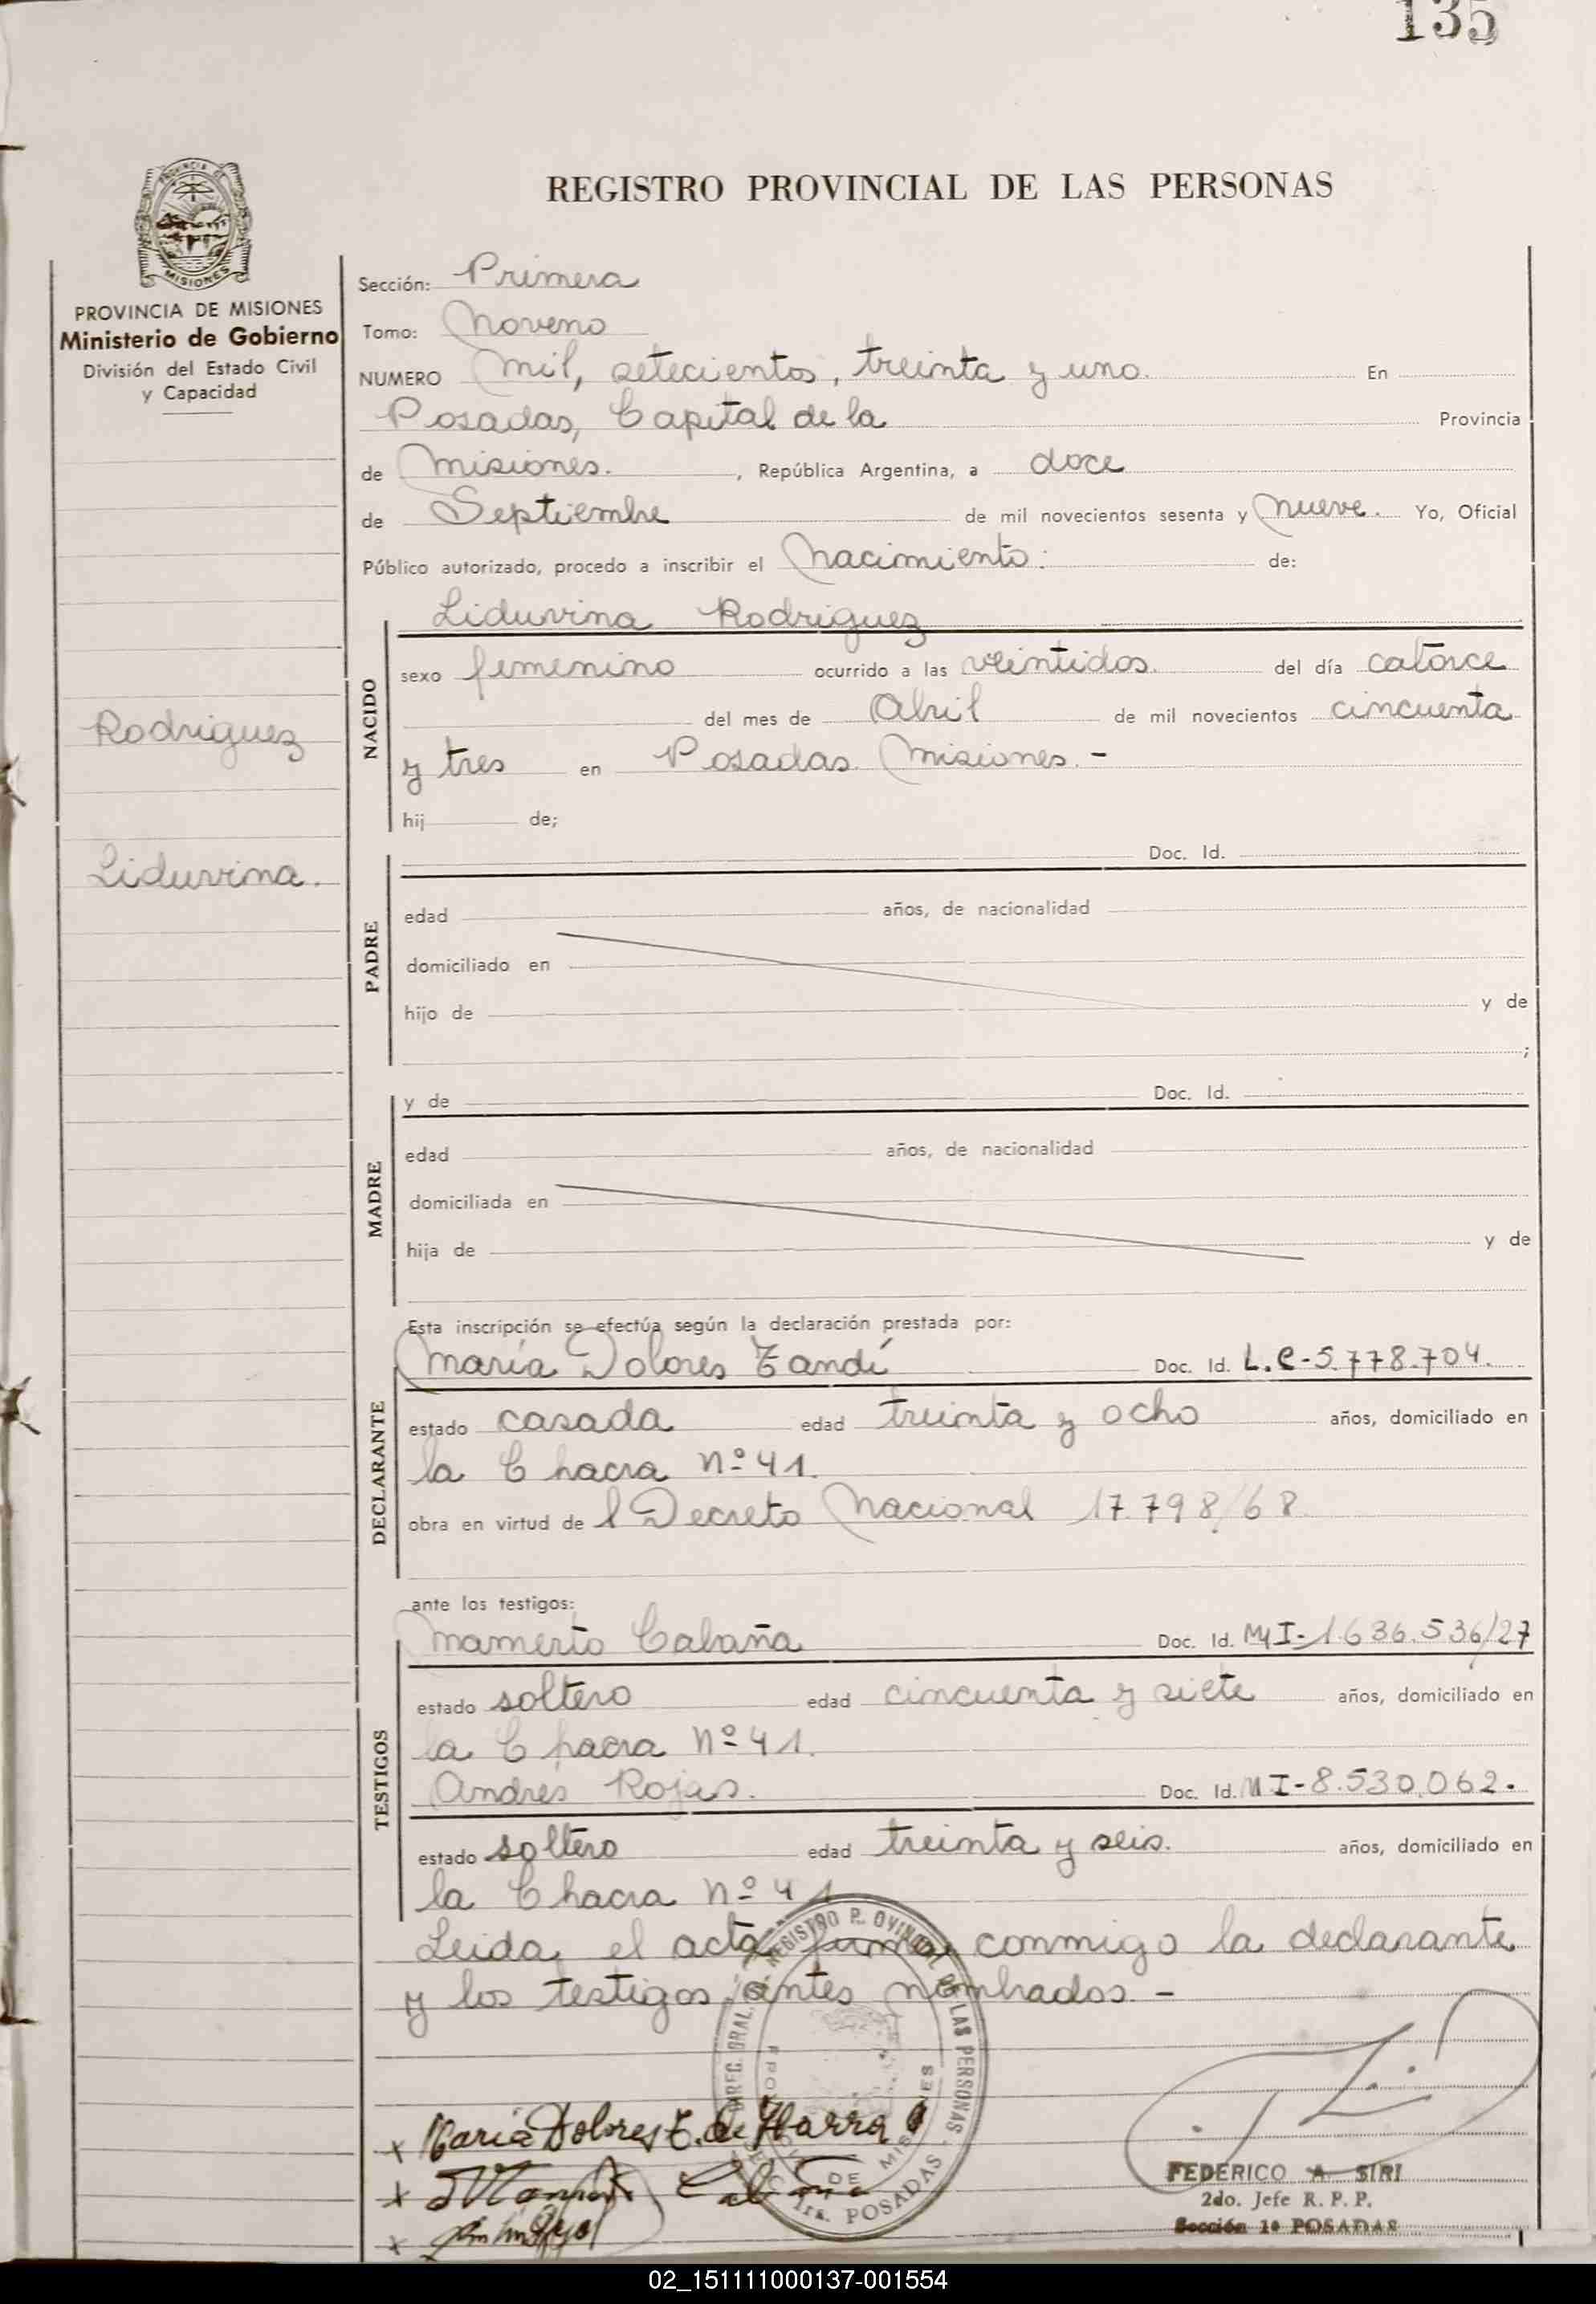 135
REGISTRO PROVINCIAL DE LAS PERSONAS
PROVINCIA DE MISIONES
Ministerio de Gobierno
División del Estado Civil
y Capacidad
Rodriguez
Liduvina.
Sección: Primera
Tomo: Noveno
NUMERO Mil, setecientos, treinta y uno. En
Posadas, Capital de la Provincia
de Misiones. , República Argentina, a doce
de Septiembre de mil novecientos sesenta y Nueve. Yo, Oficial
Público autorizado, procedo a inscribir el Nacimiento: de:
Liduvina Rodriguez
NACIDO
sexo femenino ocurrido a las veintidos. del día catorce
del mes de Abril de mil novecientos cincuenta
y tres en Posadas. Misiones. -
hij de;
PADRE
Doc. Id.
edad años, de nacionalidad
domiciliado en
hijo de y de
;
MADRE
y de Doc. Id.
edad años, de nacionalidad
domiciliada en
hija de y de
Esta inscripción se efectúa según la declaración prestada por:
DECLARANTE
María Dolores Tandí Doc. Id. L.C-5.778.704.
estado casada edad treinta y ocho años, domiciliado en
la Chacra Nº 41.
obra en virtud de l Decreto Nacional 17.798/68.
ante los testigos:
TESTIGOS
Mamerto Cabaña Doc. Id. MI-1.636.536/27
estado soltero edad cincuenta y siete años, domiciliado en
la Chacra Nº 41.
Andrés Rojas. Doc. Id. MI-8.530.062.
estado soltero edad treinta y seis. años, domiciliado en
la Chacra Nº 41
Leida, el acta firma, conmigo la declarante
y los testigos, antes nombrados. -
DIREC. GRAL. REGISTRO PROVINCIAL DE LAS PERSONAS - POSADAS
DE MISIONES
x María Dolores T. de Ibarra
x Cabaña
x
FEDERICO A. SIRI
2do. Jefe R. P. P.
Sección 1ª POSADAS
02_151111000137-001554